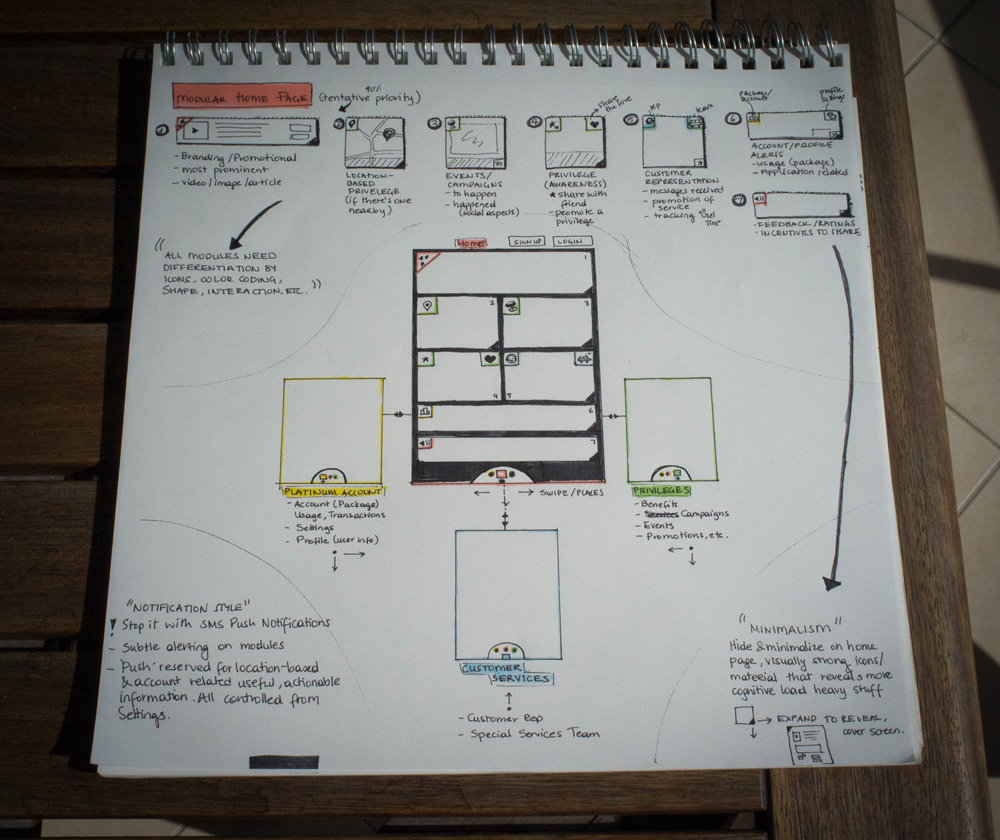 MODULAR HOME PAGE
(tentative priority)
90%
1
- Branding/Promotional
- most prominent
- video/image/article
2
LOCATION-
BASED
PRIVELEGE
(if there's one
nearby)
3
EVENTS/
CAMPAIGNS
- to happen
- happened
(social aspects)
4
share
the love
PRIVILEGE
(AWARENESS)
★ share with
friend
- promote a
privilege
5
rep
team
CUSTOMER
REPRESENTATION
- messages received
- promotion of
service
- tracking
6
package/
account
profile
settings
ACCOUNT/PROFILE
ALERTS
- usage (package)
- Application related
7
- FEEDBACK/RATINGS
- INCENTIVES TO SHARE
(( ALL MODULES NEED
DIFFERENTIATION BY
ICONS, COLOR CODING,
SHAPE, INTERACTION, ETC. ))
HOME
SIGN UP
LOGIN
1
2
3
4
5
6
7
SWIPE/PLACES
PLATINUM ACCOUNT
- Account (Package)
Usage, Transactions
- Settings
- Profile (user info)
PRIVILEGES
- Benefits
- Services Campaigns
- Events
- Promotions, etc.
CUSTOMER
SERVICES
- Customer Rep
- Special Services Team
"NOTIFICATION STYLE"
! Stop it with SMS Push Notifications
- Subtle alerting on modules
- 'Push' reserved for location-based
& account related useful, actionable
information. All controlled from
Settings.
"MINIMALISM"
Hide & minimalize on home
page, visually strong icons/
material that reveals more
cognitive load heavy stuff
EXPAND TO REVEAL,
cover screen.